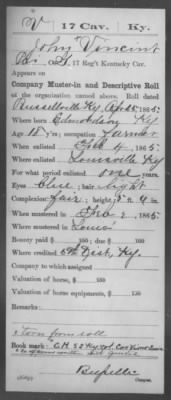 V | 17 Cav. | Ky.
John Vincent
Co. , 17 Reg't Kentucky Cav.
Appears on
Company Muster-in and Descriptive Roll
of the organization named above. Roll dated
Russellville Ky, Apl 25, 1865.
Where born Edmondson Ky
Age 18 y'rs; occupation Farmer
When enlisted Feb 4, 1865.
Where enlisted Louisville Ky
For what period enlisted one years.
Eyes blue; hair light
Complexion fair; height 5 ft. 9 in.
When mustered in Feb 2, 1865.
Where mustered in Louis
Bounty paid $ 100; due $ 100
Where credited 5th Dist, Ky.
Company to which assigned
Valuation of horse, $ 100
Valuation of horse equipments, $ 100
Remarks:
* Torn from roll
Book mark: G.H. 52 Ky Vol.
Copyist.